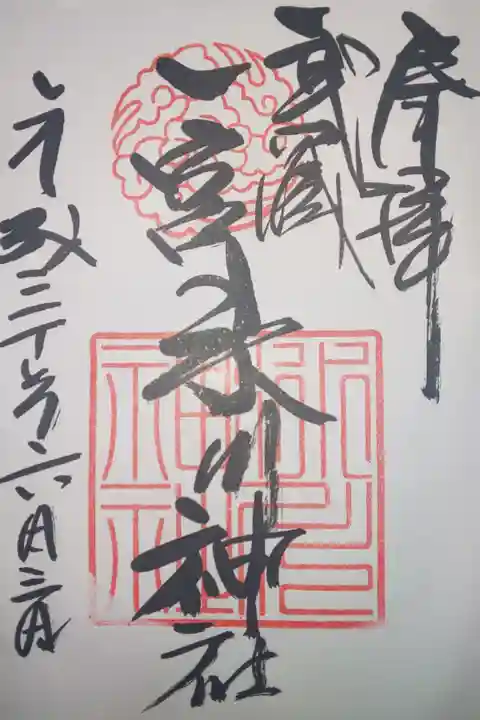 奉拝
武蔵
一宮氷川神社
令和三年六月三日
氷川神社